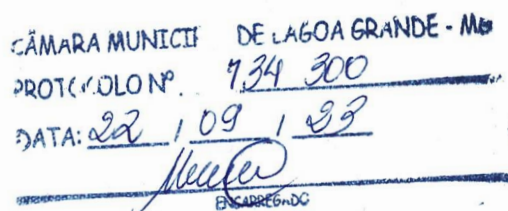 CÂMARA MUNICIPAL DE LAGOA GRANDE - MG
PROTOCOLO Nº. 734 300
DATA: 22 / 09 / 23
ENCARREGADO